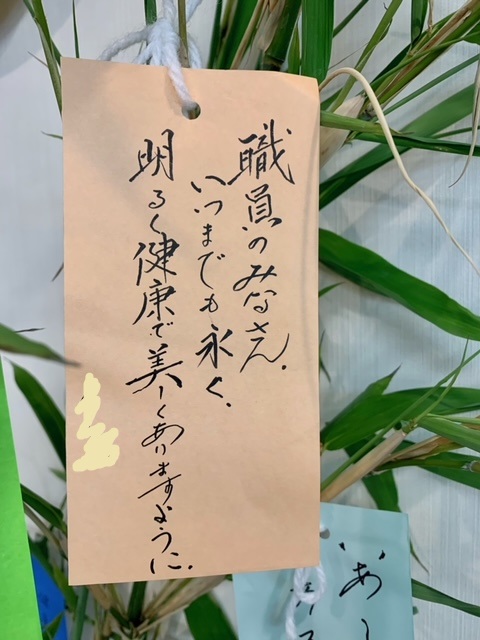 職員のみなさん.
いつまでも永く、
明るく健康で美しくありますように.